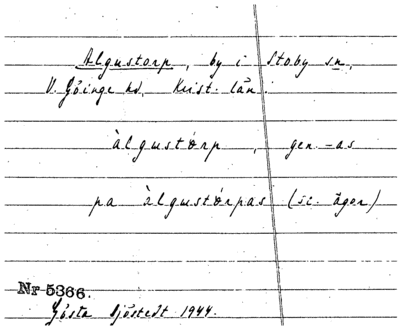 Algustorp, by i Stoby sn,
V. Göinge hd, Krist. län.
àlgustórp, gen. -as
pa àlgustórpas (sc. ägor)
Nr 5366.
Gösta Sjöstedt 1944.